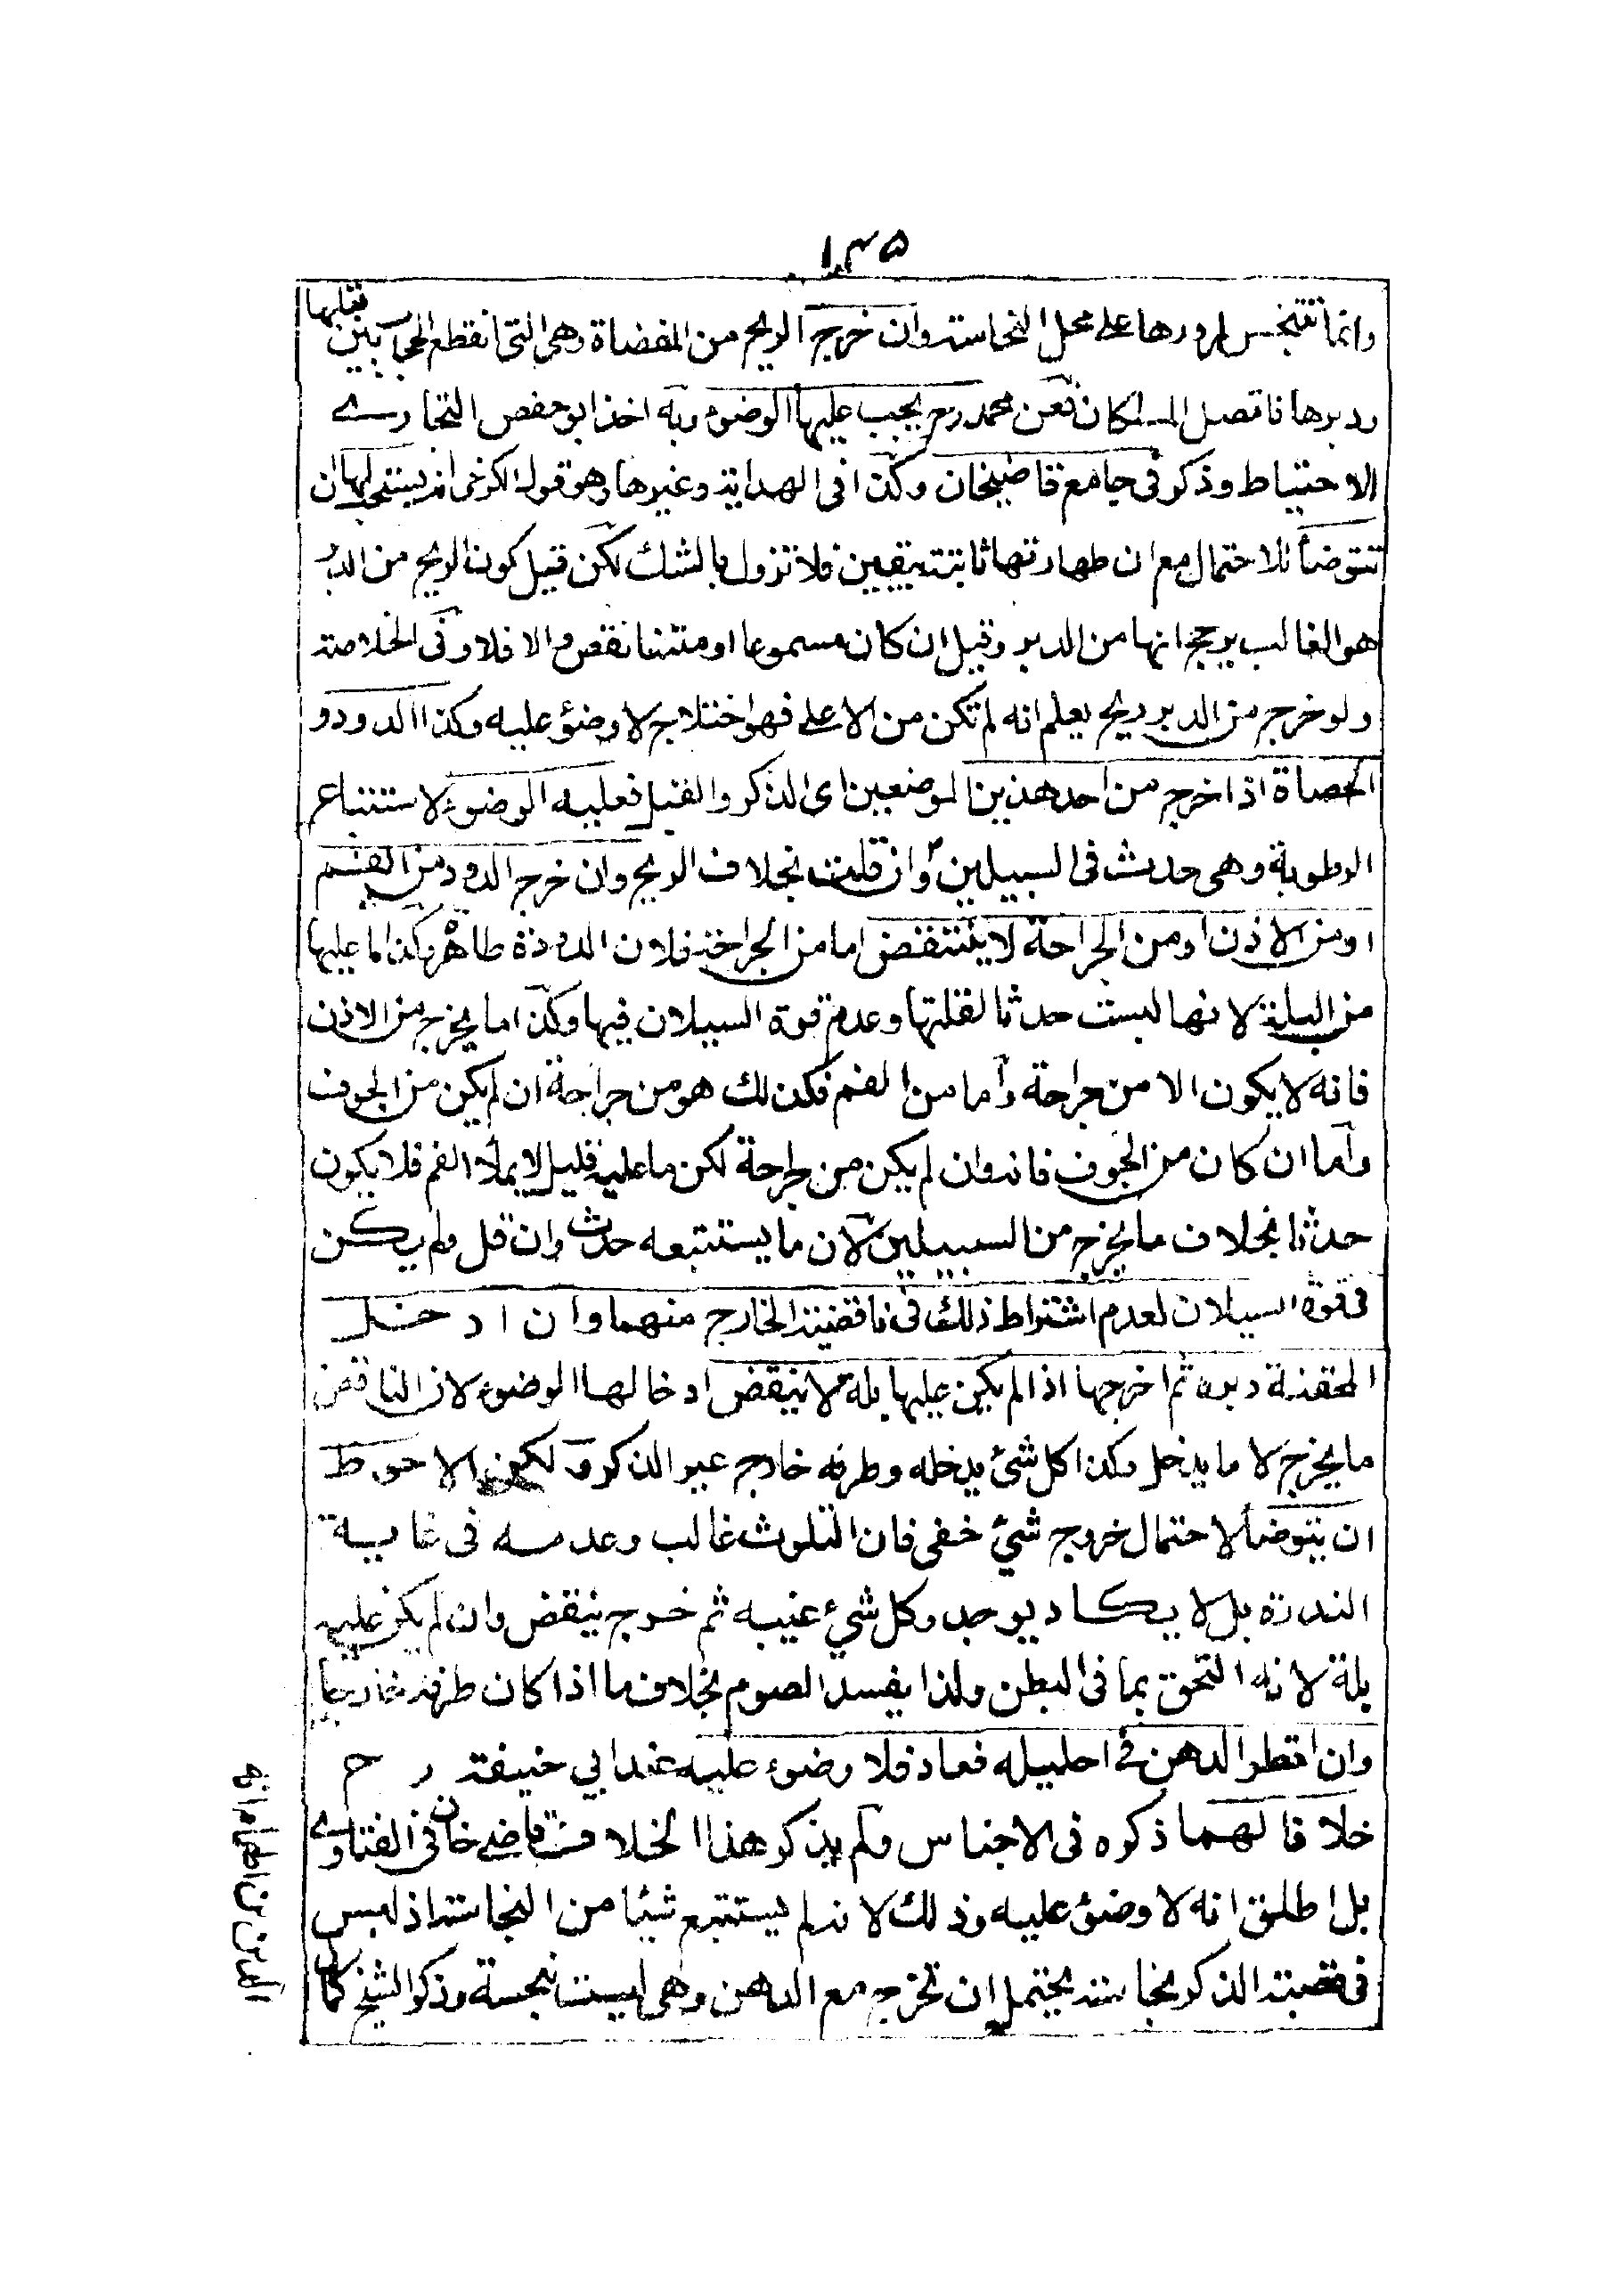 ١٣۵
وانما تتنجس لمرورها على محل النجاسة وان خرج الريح من المفضاة وهى التى انقطع الحجاب بين قبلها
ودبرها فاتصل المسلكان فعن محمد رح يجب عليها الوضوء وبه اخذ ابو حفص البخارى
الاحتياط وذكر فى جامع قاضيخان وكذا فى الهداية وغيرها وهو قول الكرخى انه يستحب لها ان
تتوضأ للاحتمال مع ان طهارتها ثابتة بيقين فلا تزول بالشك لكن قيل كون الريح من الدبر
هو الغالب يرجح انها من الدبر وقيل ان كان مسموعا او منتنا نقض والا فلا وفى الخلاصة
ولو خرج من الدبر ريح يعلم انه لم تكن من الاعلى فهو اختلاج لا وضؤ عليه وكذا الدود و
الحصاة اذا خرج من احد هذين الموضعين اى الذكر والقبل فعليه الوضوء لاستتباع
الرطوبة وهى حدث فى السبيلين وان قلت بخلاف الريح وان خرج الدود من الفم
او من الاذن او من الجراحة لا ينتقض اما من الجراحة فلان الدودة طاهرة وكذا ما عليها
من البلة لانها ليست حدثا لقلتها وعدم قوة السيلان فيها وكذا ما يخرج من الاذن
فانه لا يكون الا من جراحة واما من الفم فكذلك هو من جراحة ان لم يكن من الجوف
واما ان كان من الجوف فانه وان لم يكن من جراحة لكن ما عليه قليل لا يملأ الفم فلا يكون
حدثا بخلاف ما يخرج من السبيلين لان ما يستتبعه حدث وان قل ولم يكن
فى قوة السيلان لعدم اشتراط ذلك فى ناقضية الخارج منهما وان ادخل
المحقنة دبره ثم اخرجها اذا لم يكن عليها بلة لا ينقض ادخالها الوضوء لان الناقض
ما يخرج لا ما يدخل وكذا كل شئ يدخله وطرفه خارج غير الذكر ولكن الاحوط
ان يتوضأ لاحتمال خروج شئ خفى فان التلوث غالب وعدمه فى غاية
الندرة بل لا يكاد يوجد وكل شئ غيبه ثم خرج ينقض وان لم يكن عليه
بلة لانه التحق بما فى البطن ولذا يفسد الصوم بخلاف ما اذا كان طرفه خارجا
وان اقطر الدهن فى احليله فعاد فلا وضوء عليه عند ابي حنيفة رح
خلافا لهما ذكره فى الاجناس ولم يذكر هذا الخلاف قاضى خان فى الفتاوى
بل اطلق انه لا وضؤ عليه وذلك لانه لم يستتبع شيئا من النجاسة اذ ليس
فى قصبة الذكر نجاسة يحتمل ان تخرج مع الدهن وهى ليست نجسة وذكر الشيخ كمال
الدين بن الهمام انه